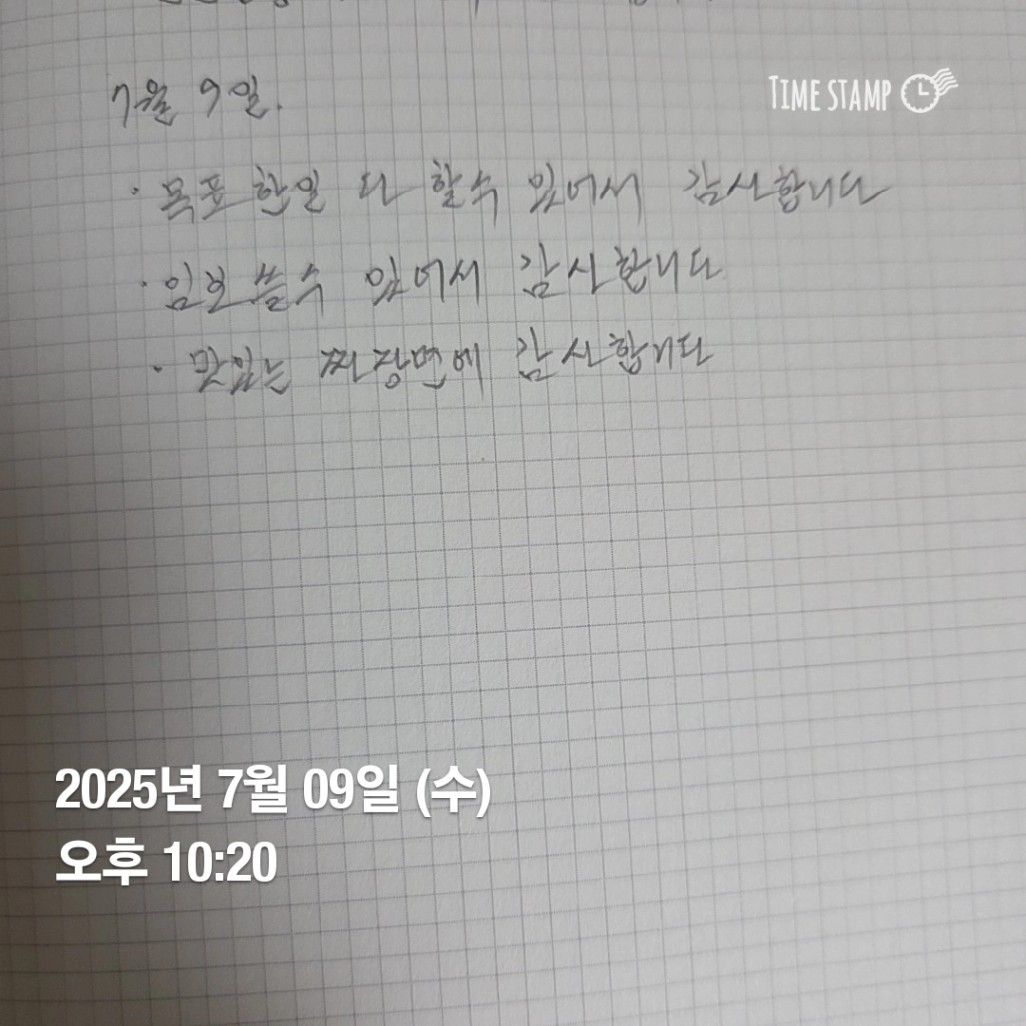 7월 9일.
TIME STAMP
· 목표한일 다 할수 있어서 감사합니다
· 일모 쓸수 있어서 감사합니다
· 맛있는 짜장면에 감사합니다
2025년 7월 09일 (수)
오후 10:20